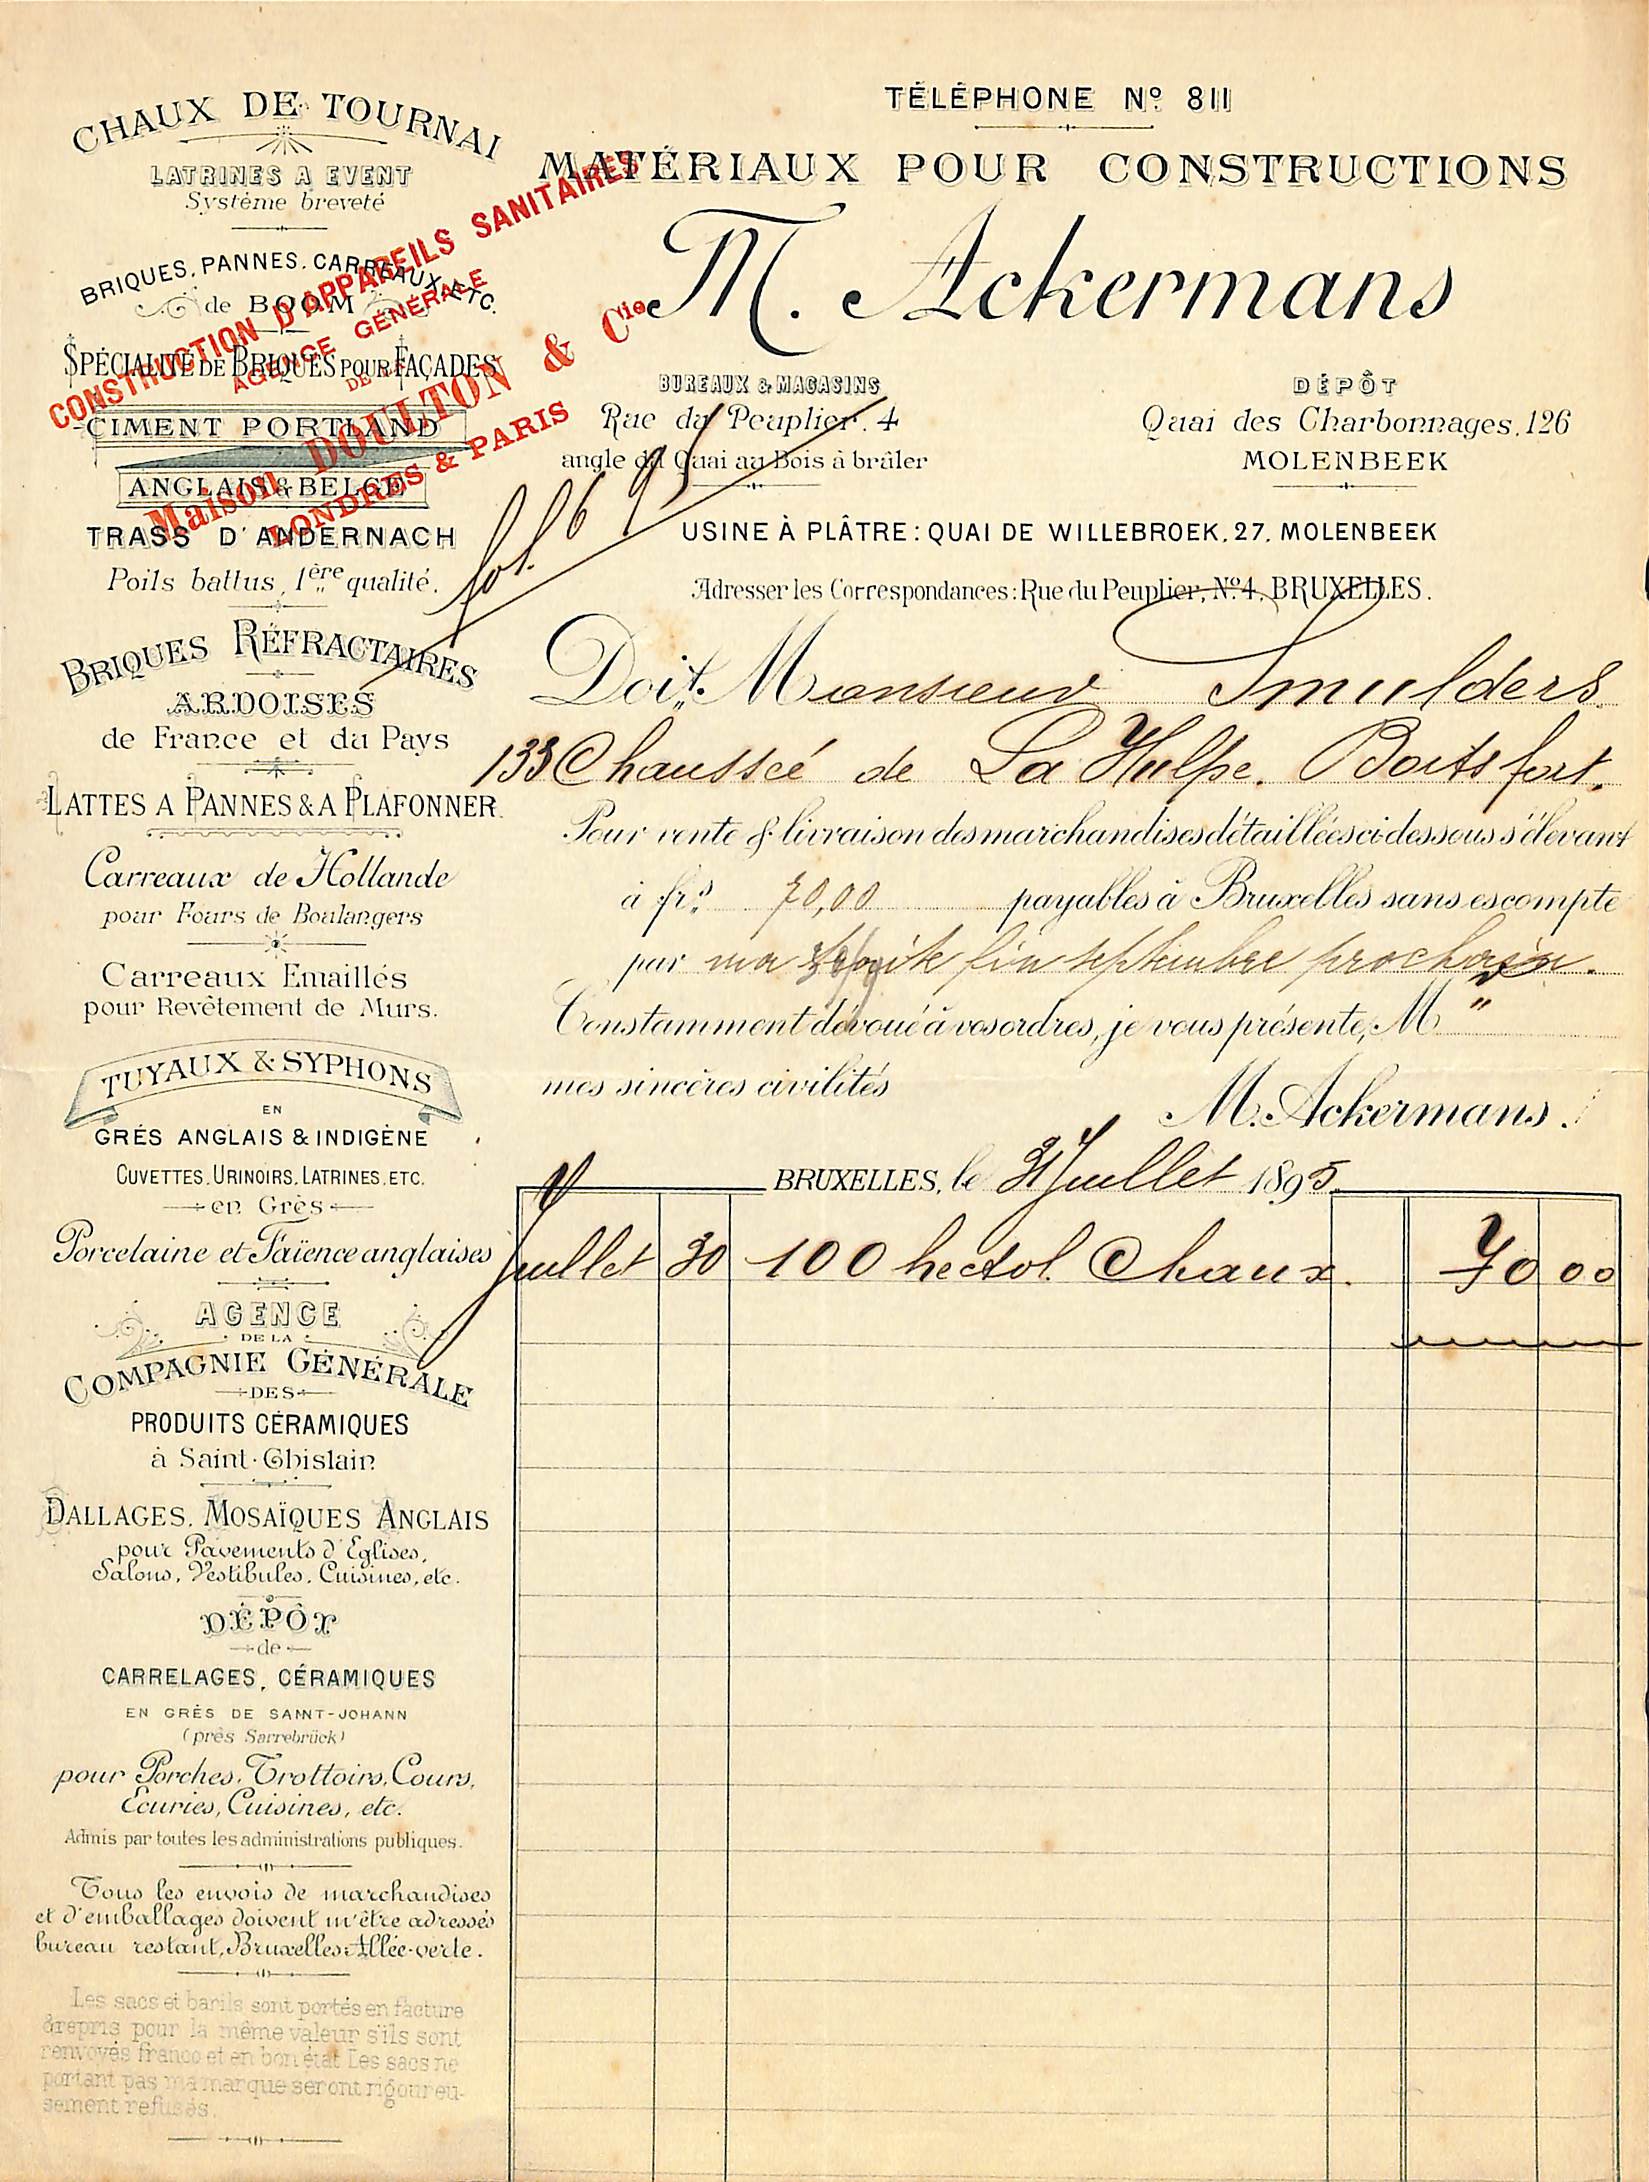 TÉLÉPHONE Nº 811
MATÉRIAUX POUR CONSTRUCTIONS
M. Ackermans
BUREAUX & MAGASINS
Rue du Peuplier. 4
angle du Quai au Bois à brûler
DÉPÔT
Quai des Charbonnages, 126
MOLENBEEK
USINE À PLÂTRE: QUAI DE WILLEBROEK. 27. MOLENBEEK
Adresser les Correspondances: Rue du Peuplier, Nº 4, BRUXELLES.
fol. 6 95
Doit Monsieur Smulders
133 Chaussé de La Hulpe. Boitsfort.
Pour vente & livraison des marchandises détaillées ci-dessous s'élevant
à frs 70,00 payables à Bruxelles sans escompte
par ma traite fin septembre prochain.
Constamment dévoué à vos ordres, je vous présente, M "
mes sincères civilités
M. Ackermans.
BRUXELLES, le 31 Juillet 1895
Juillet 30 100 hectol. Chaux. 70 00
CHAUX DE TOURNAI
LATRINES A EVENT
Système breveté
BRIQUES, PANNES. CARREAUX, ETC.
de BOOM
SPÉCIALITÉ DE BRIQUES POUR FAÇADES
CIMENT PORTLAND
ANGLAIS & BELGE
TRASS D'ANDERNACH
Poils battus, 1ère qualité.
CONSTRUCTION D'APPAREILS SANITAIRES
AGENCE GÉNÉRALE
DE LA
Maison DOULTON & Cie
LONDRES & PARIS
BRIQUES RÉFRACTAIRES
ARDOISES
de France et du Pays
LATTES A PANNES & A PLAFONNER.
Carreaux de Hollande
pour Fours de Boulangers
Carreaux Emaillés
pour Revêtement de Murs.
TUYAUX & SYPHONS
EN
GRÉS ANGLAIS & INDIGÈNE
CUVETTES, URINOIRS, LATRINES, ETC.
en Grès
Porcelaine et Faïence anglaises
AGENCE
DE LA
COMPAGNIE GÉNÉRALE
DES
PRODUITS CÉRAMIQUES
à Saint-Ghislain
DALLAGES. MOSAÏQUES ANGLAIS
pour Pavements d'Eglises,
Salons, Vestibules, Cuisines, etc.
DÉPÔT
de
CARRELAGES, CÉRAMIQUES
EN GRÉS DE SAINT-JOHANN
(près Sarrebrück)
pour Porches, Trottoirs, Cours,
Ecuries, Cuisines, etc.
Admis par toutes les administrations publiques.
Tous les envois de marchandises
et d'emballages doivent m'être adressés
bureau restant, Bruxelles-Allée-verte.
Les sacs et barils sont portés en facture
& repris pour la même valeur s'ils sont
renvoyés franco et en bon état Les sacs ne
portant pas ma marque seront rigoureu-
sement refusés.